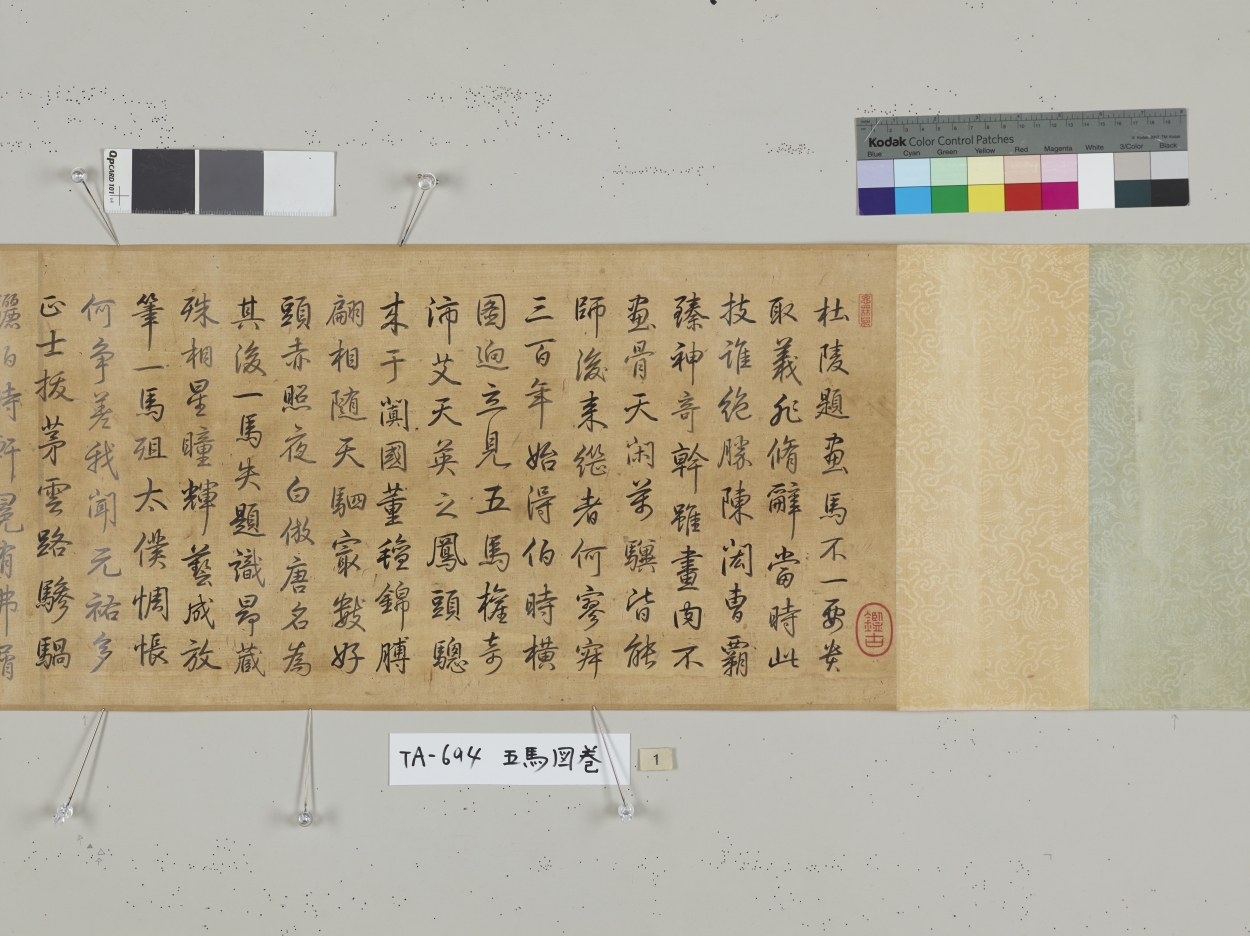 杜陵題畫馬不一要炎
取義非脩辭當時此
技誰絶勝陳閎曹霸
臻神奇幹雖畫肉不
畫骨天閑萬驥皆能
師後来繼者何寥寂
三百年始得伯時横
图逈立見五馬權奇
沛艾天英之鳳頭驄
来于闐國董穜錦膊
翩相随天駟㝡數好
頭赤照夜白倣唐名為
其後一馬失題識昂藏
殊相星瞳輝藝成放
筆一馬殂太僕惆悵
何争差我聞元祐多
正士拔茅雲路驂騧
伯時
鑑古
TA-694 五馬図巻
1
OpCARD 101
Kodak Color Control Patches
Blue Cyan Green Yellow Red Magenta White 3/Color Black